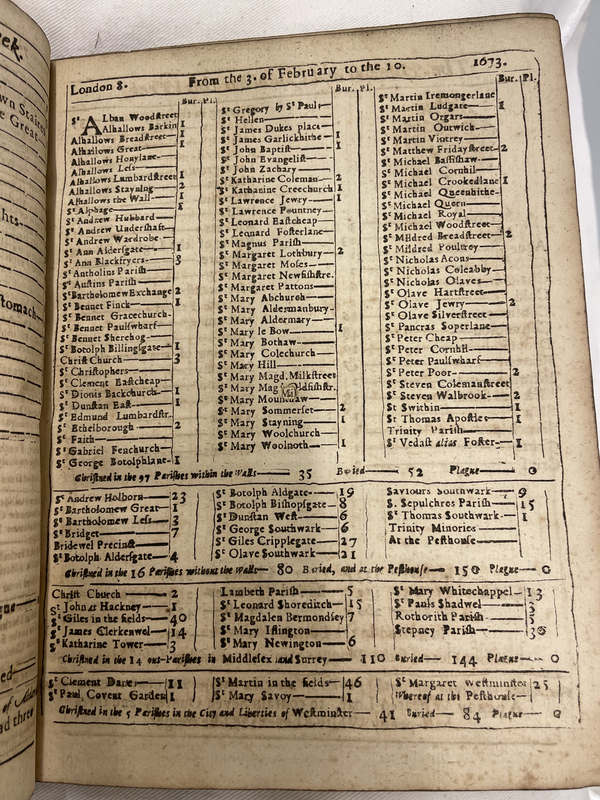 London 8. From the 3. of February to the 10. 1673.
Bur. Pl.
St Alban Woodstreet
Alhallows Barkin 1
Alhallows Breadstreet 1
Alhallows Great 1
Alhallows Honylane
Alhallows Less
Alhallows Lumbardstreet 1
Alhallows Stayning 2
Alhallows the Wall 1
St Alphage 1
St Andrew Hubbard
St Andrew Undershaft
St Andrew Wardrobe
St Ann Aldersgate 1
St Ann Blackfryers 3
St Antholins Parish
St Austins Parish
St Bartholomew Exchange 2
St Bennet Finck 1
St Bennet Gracechurch
St Bennet Paulswharf
St Bennet Sherehog
St Botolph Billingsgate 1
Christ Church 3
St Christophers
St Clement Eastcheap
St Dionis Backchurch 1
St Dunstan East 1
St Edmund Lumbardstr.
St Ethelborough 2
St Faith
St Gabriel Fenchurch
St George Botolphlane 1
Bur. Pl.
St Gregory by St Paul
St Hellen
St James Dukes place
St James Garlickhithe 1
St John Baptist 1
St John Evangelist
St John Zachary
St Katharine Coleman 2
St Katharine Creechurch 1
St Lawrence Jewry 1
St Lawrence Pountney
St Leonard Eastcheap
St Leonard Fosterlane
St Magnus Parish
St Margaret Lothbury 2
St Margaret Moses
St Margaret Newfishstre.
St Margaret Pattons
St Mary Abchurch
St Mary Aldermanbury
St Mary Aldermary
St Mary le Bow 1
St Mary Bothaw
St Mary Colechurch
St Mary Hill
St Mary Magd. Milkstreet
St Mary Mag ldfishstr.
St Mary Mounthaw
St Mary Sommerset 2
St Mary Stayning 1
St Mary Woolchurch
St Mary Woolnoth 1
Bur. Pl.
St Martin Iremongerlane
St Martin Ludgate 1
St Martin Orgars
St Martin Outwich
St Martin Vintrey
St Matthew Fridaystreet 2
St Michael Bassishaw
St Michael Cornhil
St Michael Crookedlane 1
St Michael Queenhithe
St Michael Quern
St Michael Royal
St Michael Woodstreet
St Mildred Breadstreet 2
St Mildred Poultrey
St Nicholas Acons
St Nicholas Coleabby
St Nicholas Olaves
St Olave Hartstreet
St Olave Jewry 2
St Olave Silverstreet
St Pancras Soperlane
St Peter Cheap
St Peter Cornhil
St Peter Paulswharf
St Peter Poor 2
St Steven Colemanstreet
St Steven Walbrook 2
St Swithin 1
St Thomas Apostles 1
Trinity Parish
St Vedast alias Foster 1
Christned in the 97 Parishes within the Walls 35 Buried 52 Plague 0
St Andrew Holborn 23
St Bartholomew Great 1
St Bartholomew Less 3
St Bridget 7
Bridewel Precinct
St Botolph Aldersgate 4
St Botolph Aldgate 19
St Botolph Bishopsgate 8
St Dunstan West 6
St George Southwark 6
St Giles Cripplegate 27
St Olave Southwark 21
Saviours Southwark 9
S. Sepulchres Parish 15
St Thomas Southwark 1
Trinity Minories
At the Pesthouse
Christned in the 16 Parishes without the Walls 80 Buried, and at the Pesthouse 150 Plague 0
Christ Church 2
St John at Hackney 1
St Giles in the fields 40
St James Clerkenwel 14
St Katharine Tower 3
Lambeth Parish 5
St Leonard Shoreditch 15
St Magdalen Bermondsey 7
St Mary Islington
St Mary Newington 6
St Mary Whitechappel 13
St Pauls Shadwel 3
Rothorith Parish 5
Stepney Parish 30
Christned in the 14 out-Parishes in Middlesex and Surrey 110 Buried 144 Plague 0
St Clement Danes 11
St Paul Covent Garden 1
St Martin in the fields 46
St Mary Savoy 1
St Margaret Westminster 25
Whereof at the Pesthouse
Christned in the 5 Parishes in the City and Liberties of Westminster 41 Buried 84 Plague 0